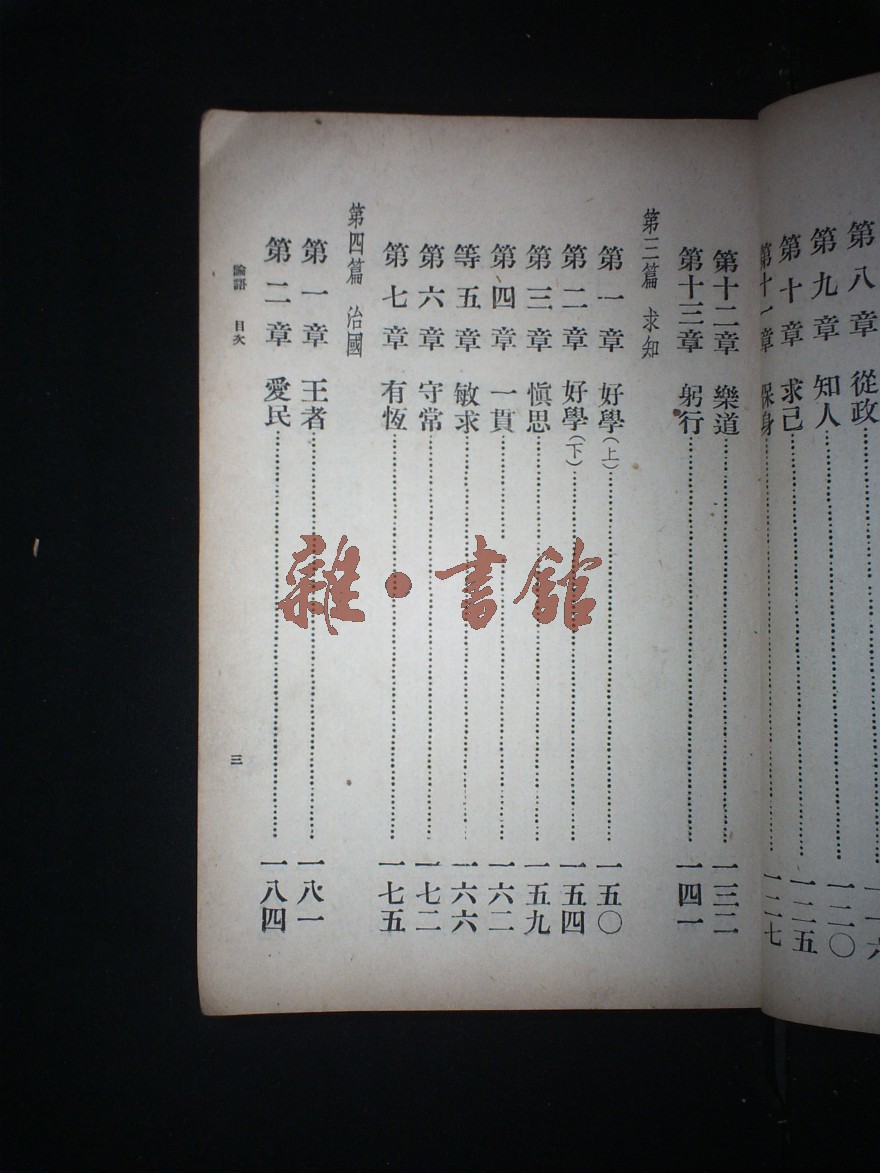 第八章 從政
第九章 知人 一二〇
第十章 求己 一二五
第十一章 保身 一二七
第十二章 樂道 一三二
第十三章 躬行 一四一
第三篇 求知
第一章 好學(上) 一五〇
第二章 好學(下) 一五四
第三章 愼思 一五九
第四章 一貫 一六二
等五章 敏求 一六六
第六章 守常 一七二
第七章 有恆 一七五
第四篇 治國
第一章 王者 一八一
第二章 愛民 一八四
論語 目次 三
雜·書館